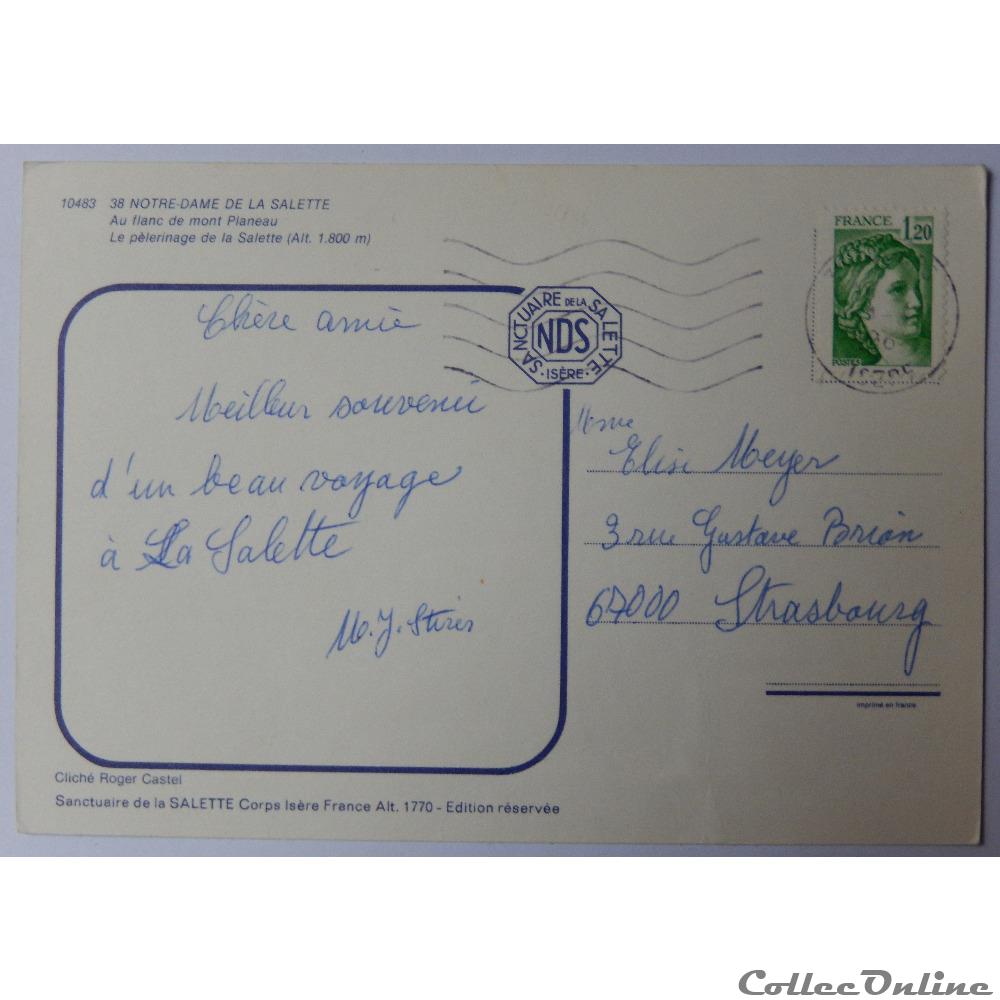 10483 38 NOTRE-DAME DE LA SALETTE
Au flanc de mont Planeau
Le pèlerinage de la Salette (Alt. 1.800 m)
FRANCE 1,20
POSTES
SANCTUAIRE DE LA SALETTE
NDS
·ISÈRE·
Chère amie
Meilleur souvenir
d'un beau voyage
à La Salette
M. J.
Mme
Elise Meyer
3 rue Gustave Brion
67000 Strasbourg
imprimé en france
Cliché Roger Castel
Sanctuaire de la SALETTE Corps Isère France Alt. 1770 - Edition réservée
CollecOnline